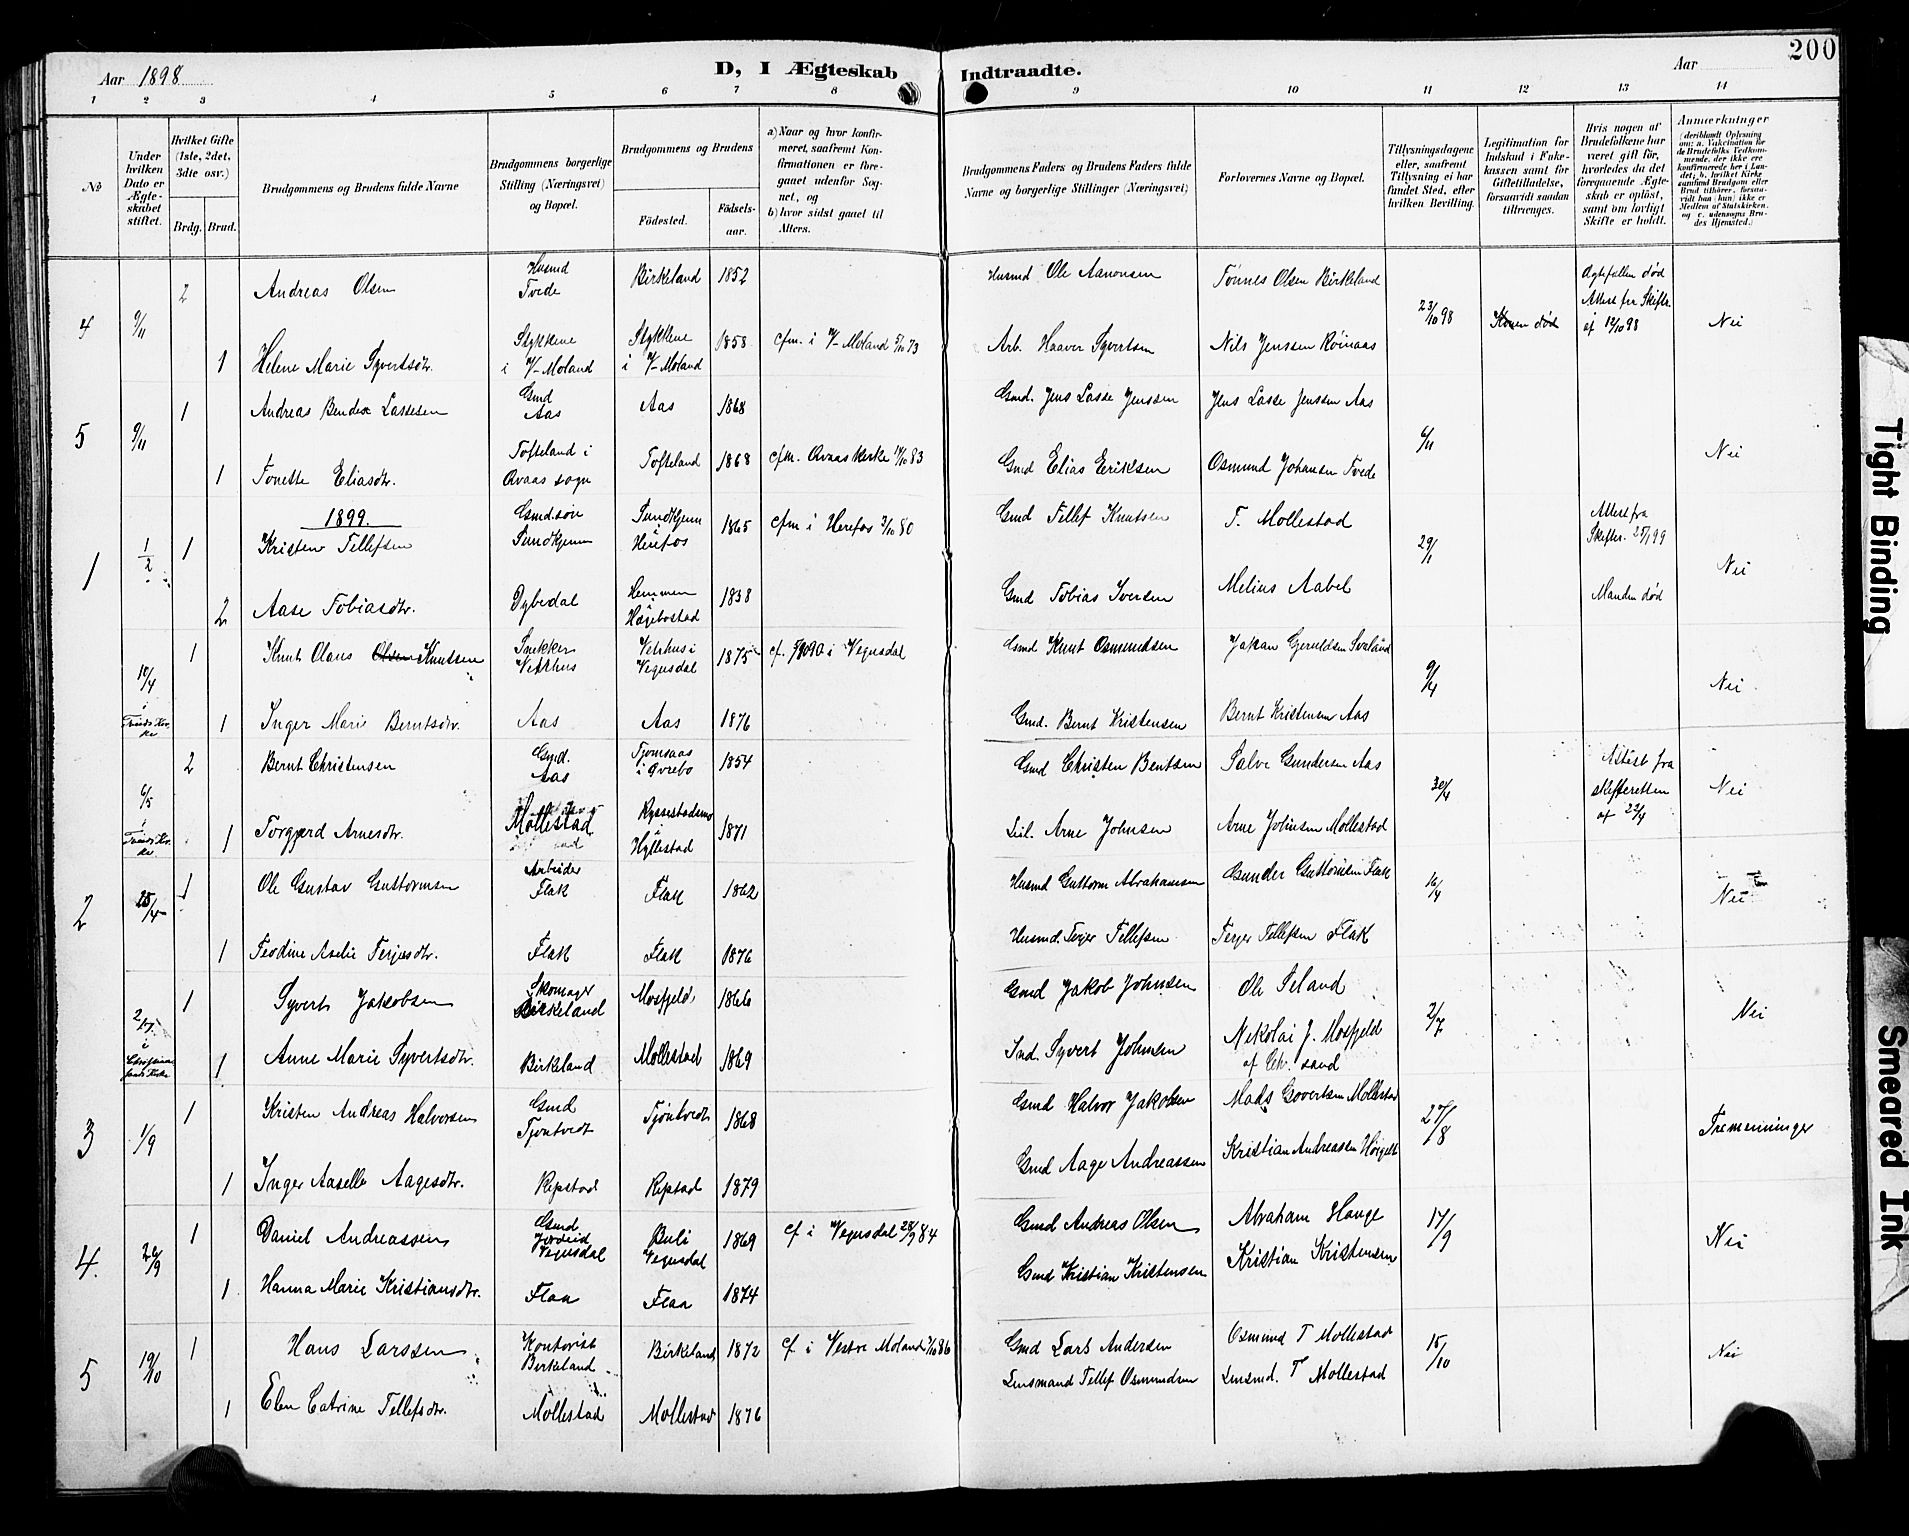 200
Aar 1898
D, I Ægteskab Indtraadte.
Aar
1 2 3 4 5 6 7 8 9 10 11 12 13 14
No
Under hvilken Dato er Ægteskabet stiftet.
Hvilket Gifte (1ste, 2det, 3dte osv.)
Brdg. Brud.
Brudgommens og Brudens fulde Navne
Brudgommens borgerlige Stilling (Næringsvei) og Bopæl.
Brudgommens og Brudens
Fødested.
Fødselsaar.
a) Naar og hvor konfirmeret, saafremt Konfirmationen er foregaaet udenfor Sognet, og
b) hvor sidst gaaet til Alters.
Brudgommens Faders og Brudens Faders fulde Navne og borgerlige Stillinger (Næringsvei)
Forlovernes Navne og Bopæl.
Tillysningsdagene eller, saafremt Tillysning ei har fundet Sted, efter hvilken Bevilling.
Legitimation for Indskud i Enkekassen samt for Giftetilladelse, forsaavidt saadan tiltrænges.
Hvis nogen af Brudefolkene har været gift før, hvorledes da det foregaaende Ægteskab er opløst, samt om lovligt Skifte er holdt.
Anmærkninger
4 9/11 2 Andreas Olsen Husmd Tvede Birkeland 1852 Husmd Ole Aanonsen Tønnes Olsen Birkeland 23/10 98 Konen død Ægtefællen død Attest fra Skifter. af 12/10 98 Nei
1 Helene Marie Syvertsdtr. Stykkene i V-Moland Stykkene i V-Moland 1858 cfm. i V-Moland 5/10 73 Arb. Haaver Syvertsen Nils Jenssen Røinaas
5 9/11 1 Andreas Bendix Lassesen Gmd Aas Aas 1868 Gmd. Jens Lasse Jenssen Jens Lasse Jenssen Aas 6/11 Nei
1 Tonette Eliasdtr. Tofteland i Øvaas sogn Tofteland 1868 cfm. Øvaas kirke 83 Gmd Elias Eriksen Osmund Johansen Tvede
1899.
1 1/2 1 Kristen Tellefsen Gmdsøn Sundtjenn Sundtjenn Herefos 1865 cfm i Herefos 3/10 80 Gmd Tellef Knutsen T. Mollestad 29/1 Attest fra Skifter. 25/1 99 Nei
2 Aase Tobiasdtr. Dybedal Hemmen Hægebostad 1838 Gmd Tobias Iversen Melius Aabel Manden død
18/4 i Trinds Kirke 1 Knut Olaus Olsen Knutsen Snekker Vetrhus Vetrhus i Vegusdal 1875 cf. 90 i Vegusdal Gmd Knut Osmundsen Jakan Gjeruldsen Svaland 9/4 Nei
1 Inger Marie Berntsdtr. Aas Aas 1876 Gmd. Bernt Kristensen Bernt Kristensen Aas
6/5 i Trinds Kirke 2 Bernt Christensen Gmd. Aas Tjomsaas i Øvrebø 1854 Gmd Christen Bentsen Salve Gundersen Aas 30/4 Attest fra skifteretten af 22/4 Nei
1 Torgjerd Arnesdtr. Mollestad Hyllestad 1871 Arne Johnsen Arne Johnsen Mollestad
2 25/4 1 Ole Gustav Guttormsen Arbeider Flak Flak 1862 Husmd Guttorm Abrahamsen Gunder Guttormsen Flak 16/4 Nei
1 Teodine Aselie Terjesdtr. Flak Flak 1876 Husmd. Terjer Tellefsen Terjer Tellefsen Flak
2/7 i Christiansands Kirke 1 Syvert Jakobsen Skomager Birkeland Mosfjeld 1866 Gmd Jakob Johnsen Ole Seland 2/7 Nei
1 Anne Marie Syvertsdtr. Birkeland Mollestad 1869 Ind. Syvert Johnsen Nekolai J. Mosfjeld af Chr. sand
3 1/9 1 Kristen Andreas Halvorsen Gmd Tjøntvedt Tjøntvedt 1868 Gmd Halvor Jakobsen Mads Govertsen Mollestad 27/8 Tremenninger
1 Inger Aaselle Aagesdtr. Repstad Repstad 1879 Gmd Aage Andreassen Kristian Andreassen
4. 26/9 1 Daniel Andreassen Gmd Vegusdal Buli Vegusdal 1869 cf i Vegusdal 28/9 84 Gmd Andreas Olsen Abraham Hauge 17/9 Nei
1 Hanna Marie Kristiansdtr. Flaa Flaa 1874 Gmd Kristian Kristensen Kristian Kristensen
5 19/10 1 Hans Larssen Kontorist Birkeland Birkeland 1872 cf i Vestre Moland 3/10 86 Gmd Lars Andersen Osmund T Mollestad 15/10 Nei
1 Elen Catrine Tellefsdtr. Mollestad Mollestad 1876 Lensmand Tellef Osmundsen Lensmd. T Mollestad
Tight Binding
Smeared Ink